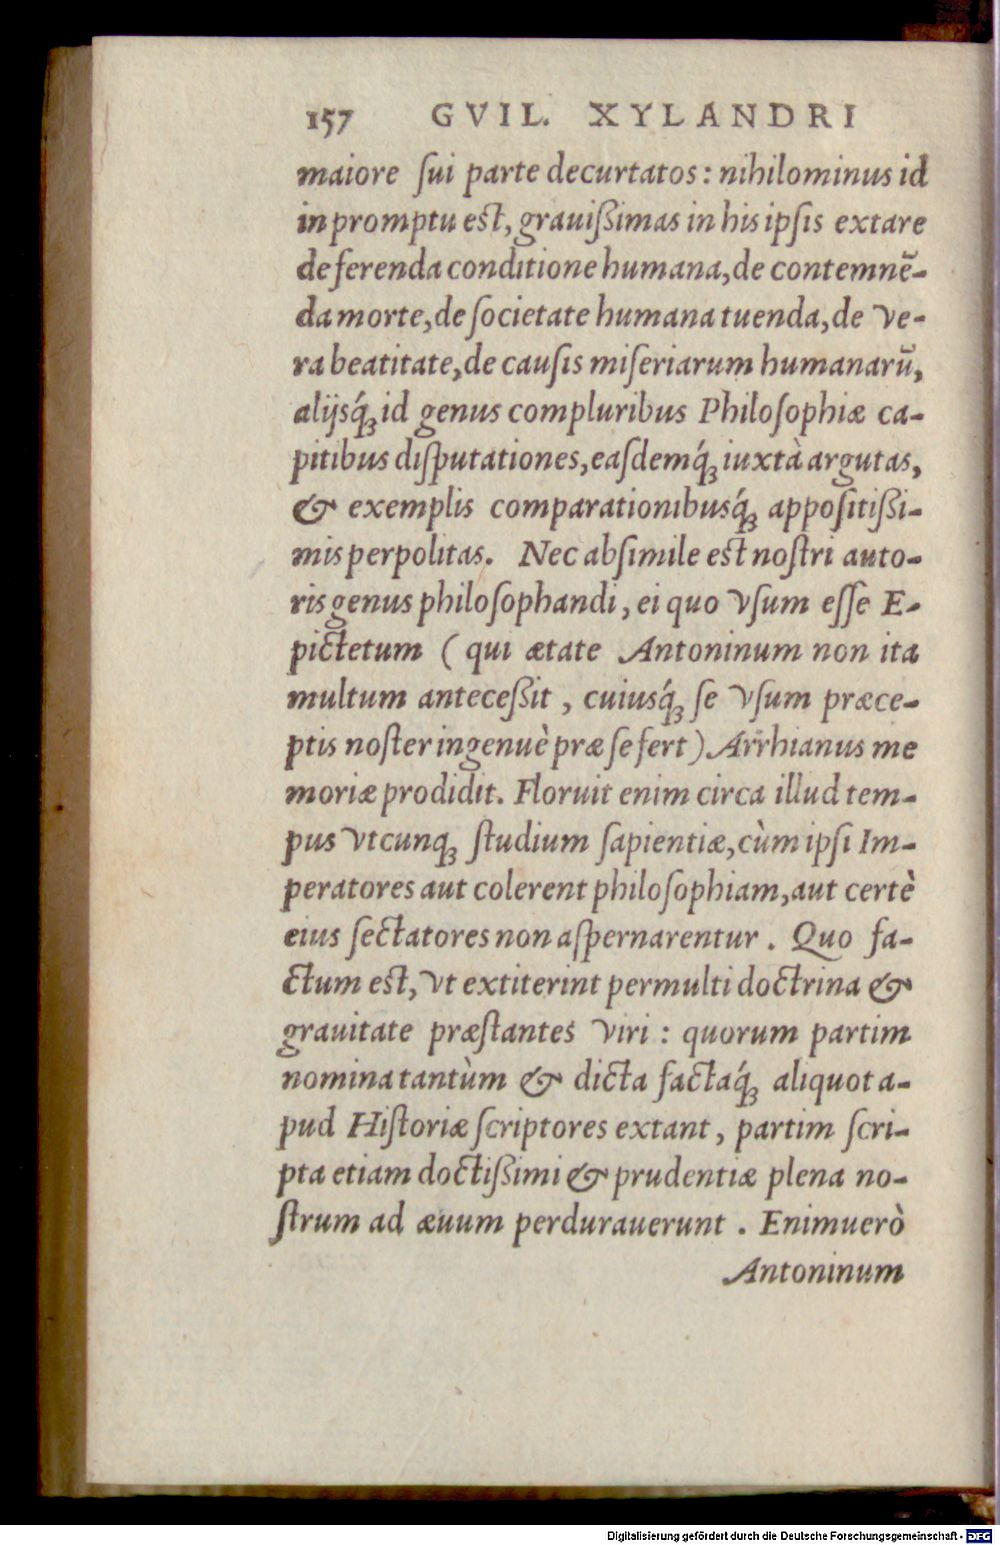 157 GVIL. XYLANDRI
maiore ſui parte decurtatos: nihilominus id
in promptu est, grauißimas in his ipſis extare
de ferenda conditione humana, de contemnē-
da morte, de ſocietate humana tuenda, de ve-
ra beatitate, de cauſis miſeriarum humanarū,
alijsq́ꝫ id genus compluribus Philoſophiæ ca-
pitibus diſputationes, eaſdemq́ꝫ iuxtà argutas,
& exemplis comparationibusq́ꝫ appoſitißi-
mis perpolitas. Nec abſimile est noſtri auto-
ris genus philoſophandi, ei quo vſum eſſe E-
pictetum ( qui ætate Antoninum non ita
multum anteceßit , cuiusq́ꝫ ſe vſum præce-
ptis noſter ingenuè præ ſe fert ) Arrhianus me
moriæ prodidit. Floruit enim circa illud tem-
pus vtcunqꝫ ſtudium ſapientiæ, cùm ipſi Im-
peratores aut colerent philoſophiam, aut certè
eius ſectatores non aſpernarentur . Quo fa-
ctum est, vt extiterint permulti doctrina &
grauitate præſtantes viri : quorum partim
nomina tantùm & dicta factaq́ꝫ aliquot a-
pud Hiſtoriæ ſcriptores extant , partim ſcri-
pta etiam doctißimi & prudentiæ plena no-
ſtrum ad æuum perdurauerunt . Enimuerò
Antoninum
Digitalisierung gefördert durch die Deutsche Forschungsgemeinschaft - DFG